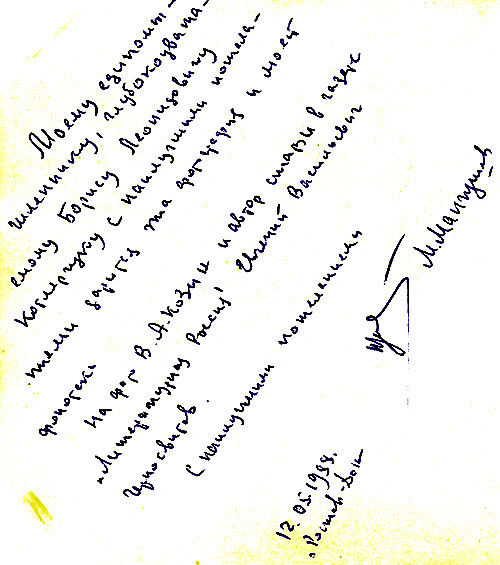 Моему единомыш-
леннику, глубокоуважа-
емому Борису Леонидовичу
с наилучшими пожела-
ниями дарится эта фотография и моей
фонотеки
На фот В. А. Козин и автор статьи в газете
„Литературная Россия" Евгений Васильевич
Черносвитов.
С наилучшими пожеланиями
М. Мангушев
12.05.1998.
г. Ростов-Дон